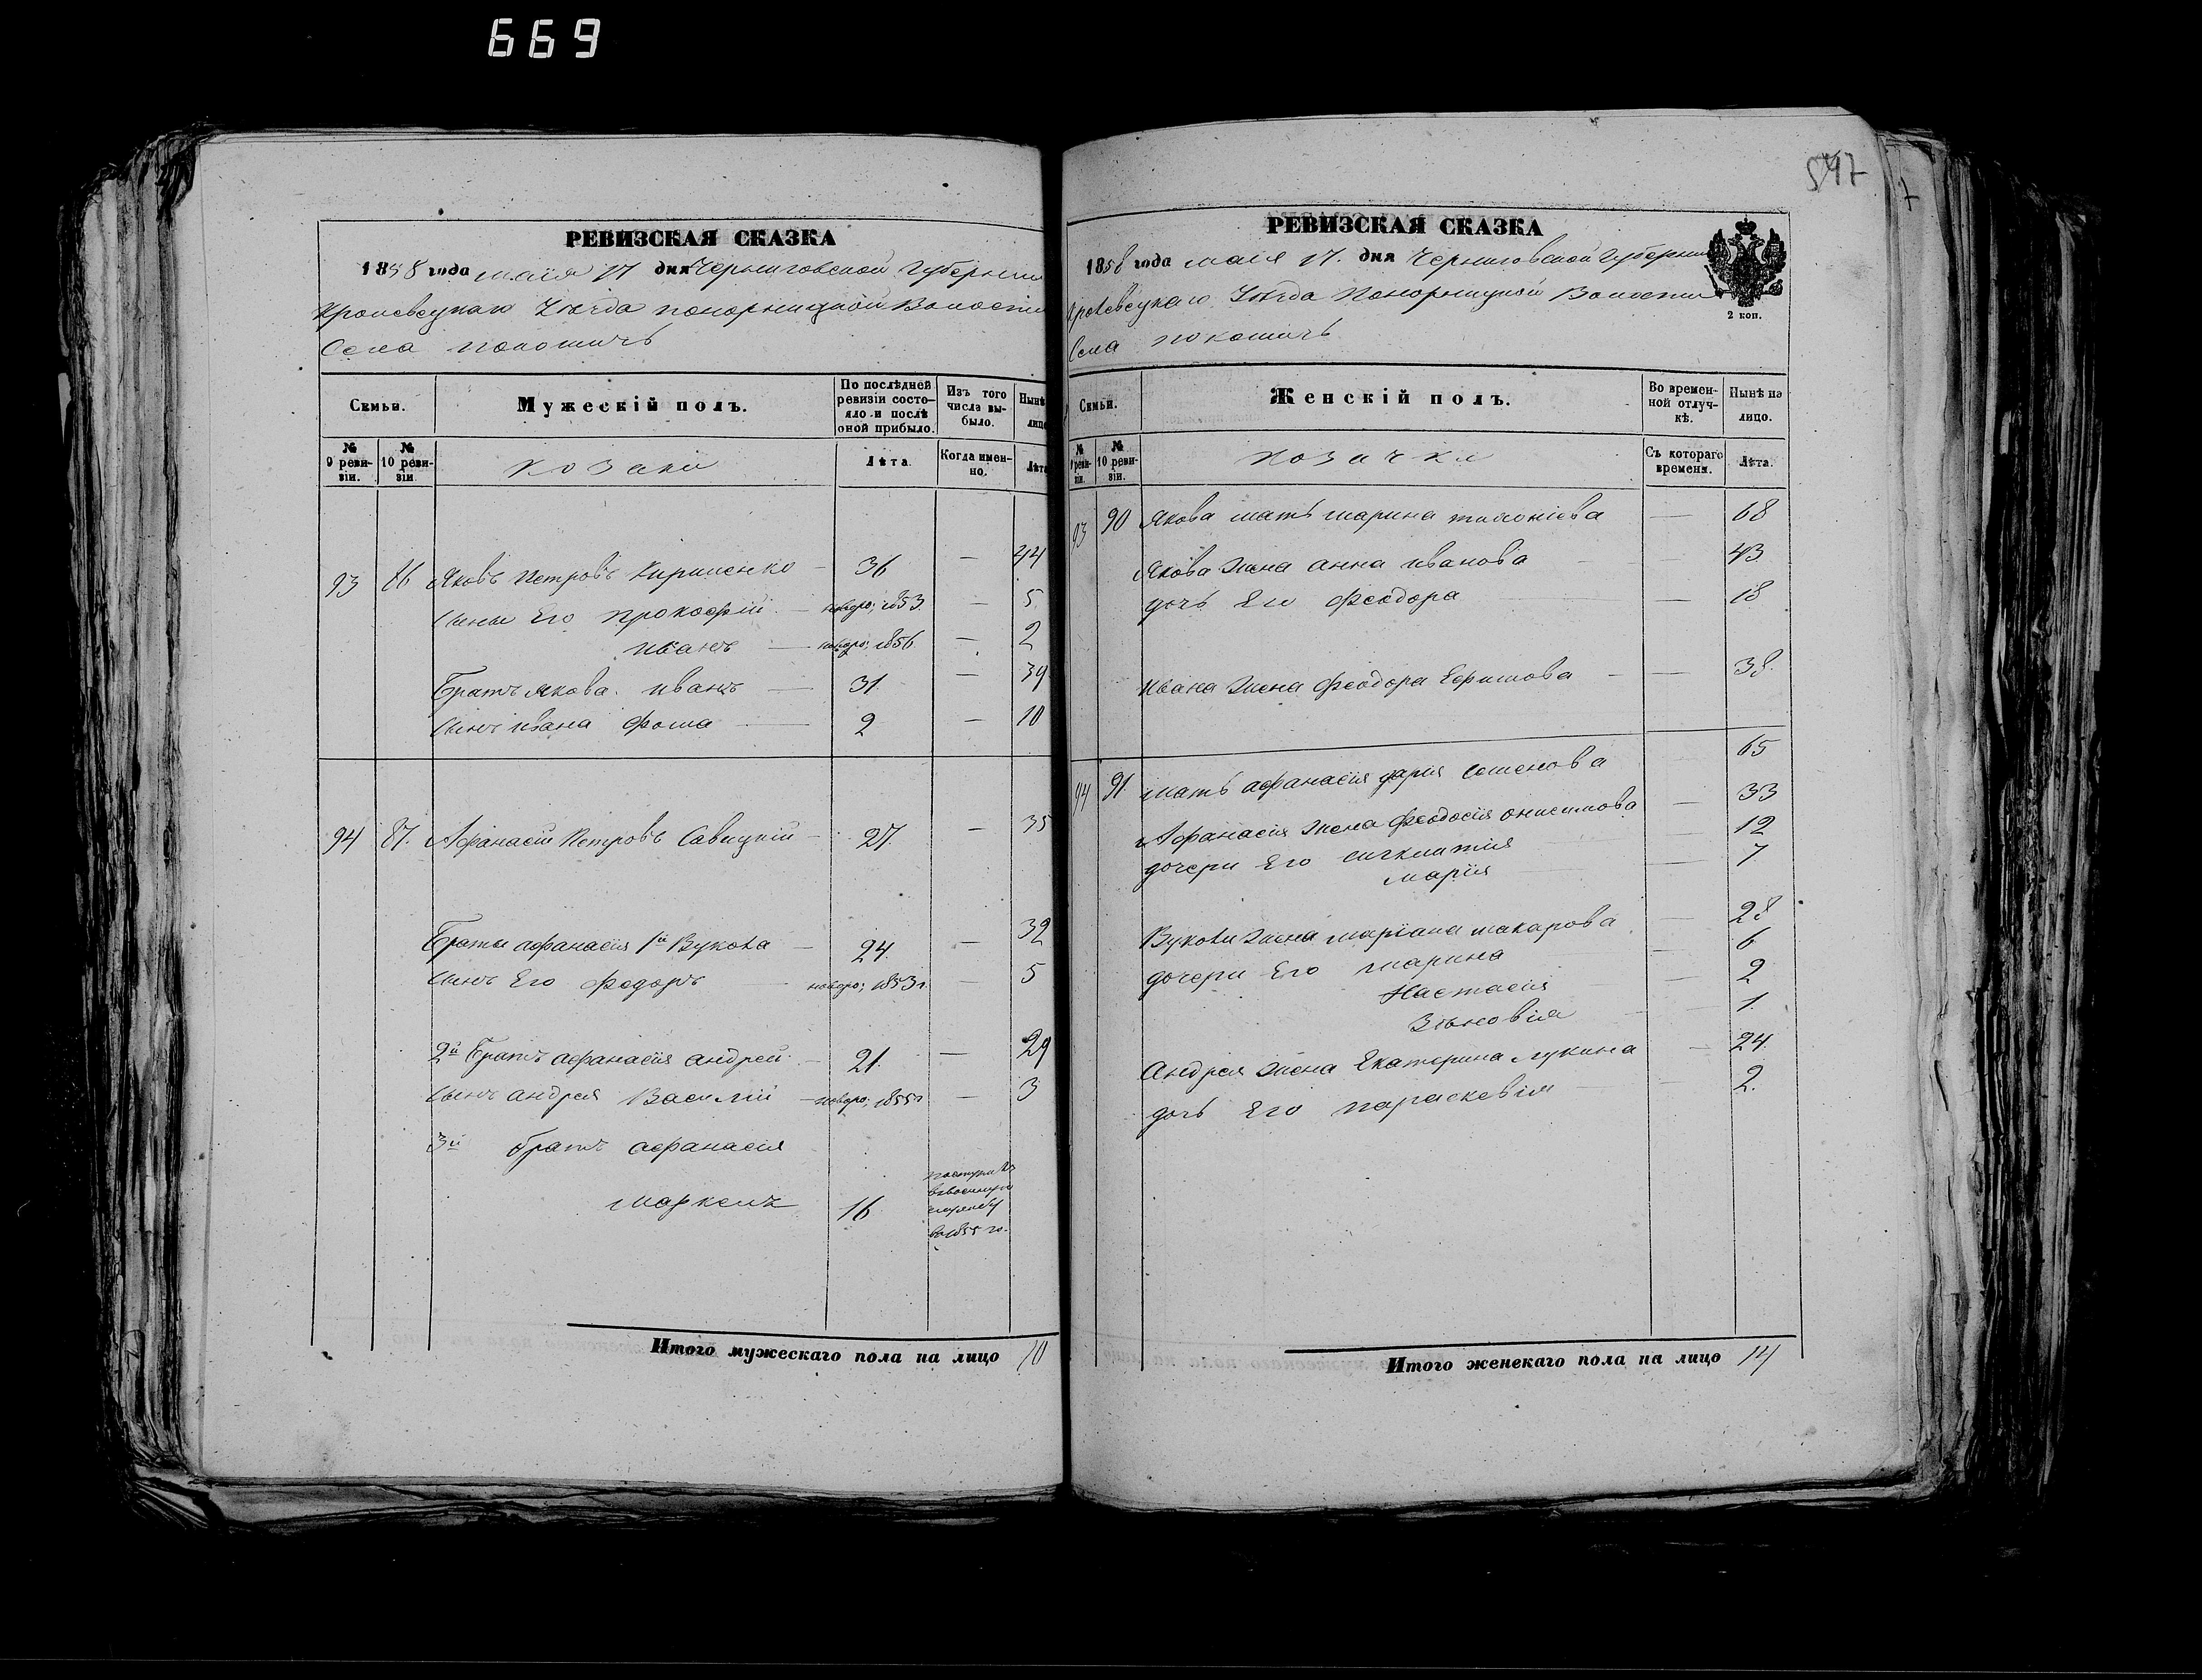 669
547
РЕВИЗСКАЯ СКАЗКА
1858 года маія 17 дня Черниговской Губерніи
Кролевецкаго Уѣзда понорницкой Волости
Села покошичъ
Семьи.
Мужескій полъ.
По послѣдней ревизіи состояло и послѣ оной прибыло.
Изъ того числа выбыло.
Нынѣ лицо
№ 9 ревизіи.
№ 10 ревизіи
козаки
Лѣта.
Когда именно.
Лѣта
93 86 Яковъ Петровъ Кириленко 36 — 44
Сыны Его Прокофій — новоро; 1853 — 5
иванъ — новоро; 1856 — 2
Братъ якова иванъ — 31 — 39
Сынъ ивана фома — 2 — 10
94 87. Афанасій Петровъ Савицкій — 27. — 35
Браты афанасія 1й Вукола — 24. — 32
Сынъ Его Федоръ — новоро; 1853 г. — 5
2й Братъ афанасія андрей — 21. — 29
Сынъ андрея Василій — новоро; 1855 г — 3
3й братъ афанасія
маркелъ 16
въ 1855 го.
Итого мужескаго пола на лицо 10
РЕВИЗСКАЯ СКАЗКА
1858 года маія 17. дня Черниговской Губерніи
Кролевецкаго Уѣзда Понорницкой Волости
Села покошичъ
2 коп.
Семьи.
Женскій полъ.
Во временной отлучкѣ.
Нынѣ на лицо.
№ 9 ревизіи.
№ 10 ревизіи.
козачки
Съ котораго времени.
Лѣта.
93 90 Якова мать марина тимофіева — 68
Якова жена анна иванова — 43
дочь Его Феодора — 18
ивана жена феодора Ефимова — 38.
94 91 мать афанасія дарія семенова 65
Афанасія жена Феодосія онисимова — 33
дочери Его синклитія — 12
марія — 7
Вуколы жена маріана макарова — 28
дочери Его марина — 6
Настасія — 2
Зѣновія — 1.
Андрея жена Екатерина лукина — 24.
дочь Его параскевія — 2.
Итого женскаго пола на лицо 14